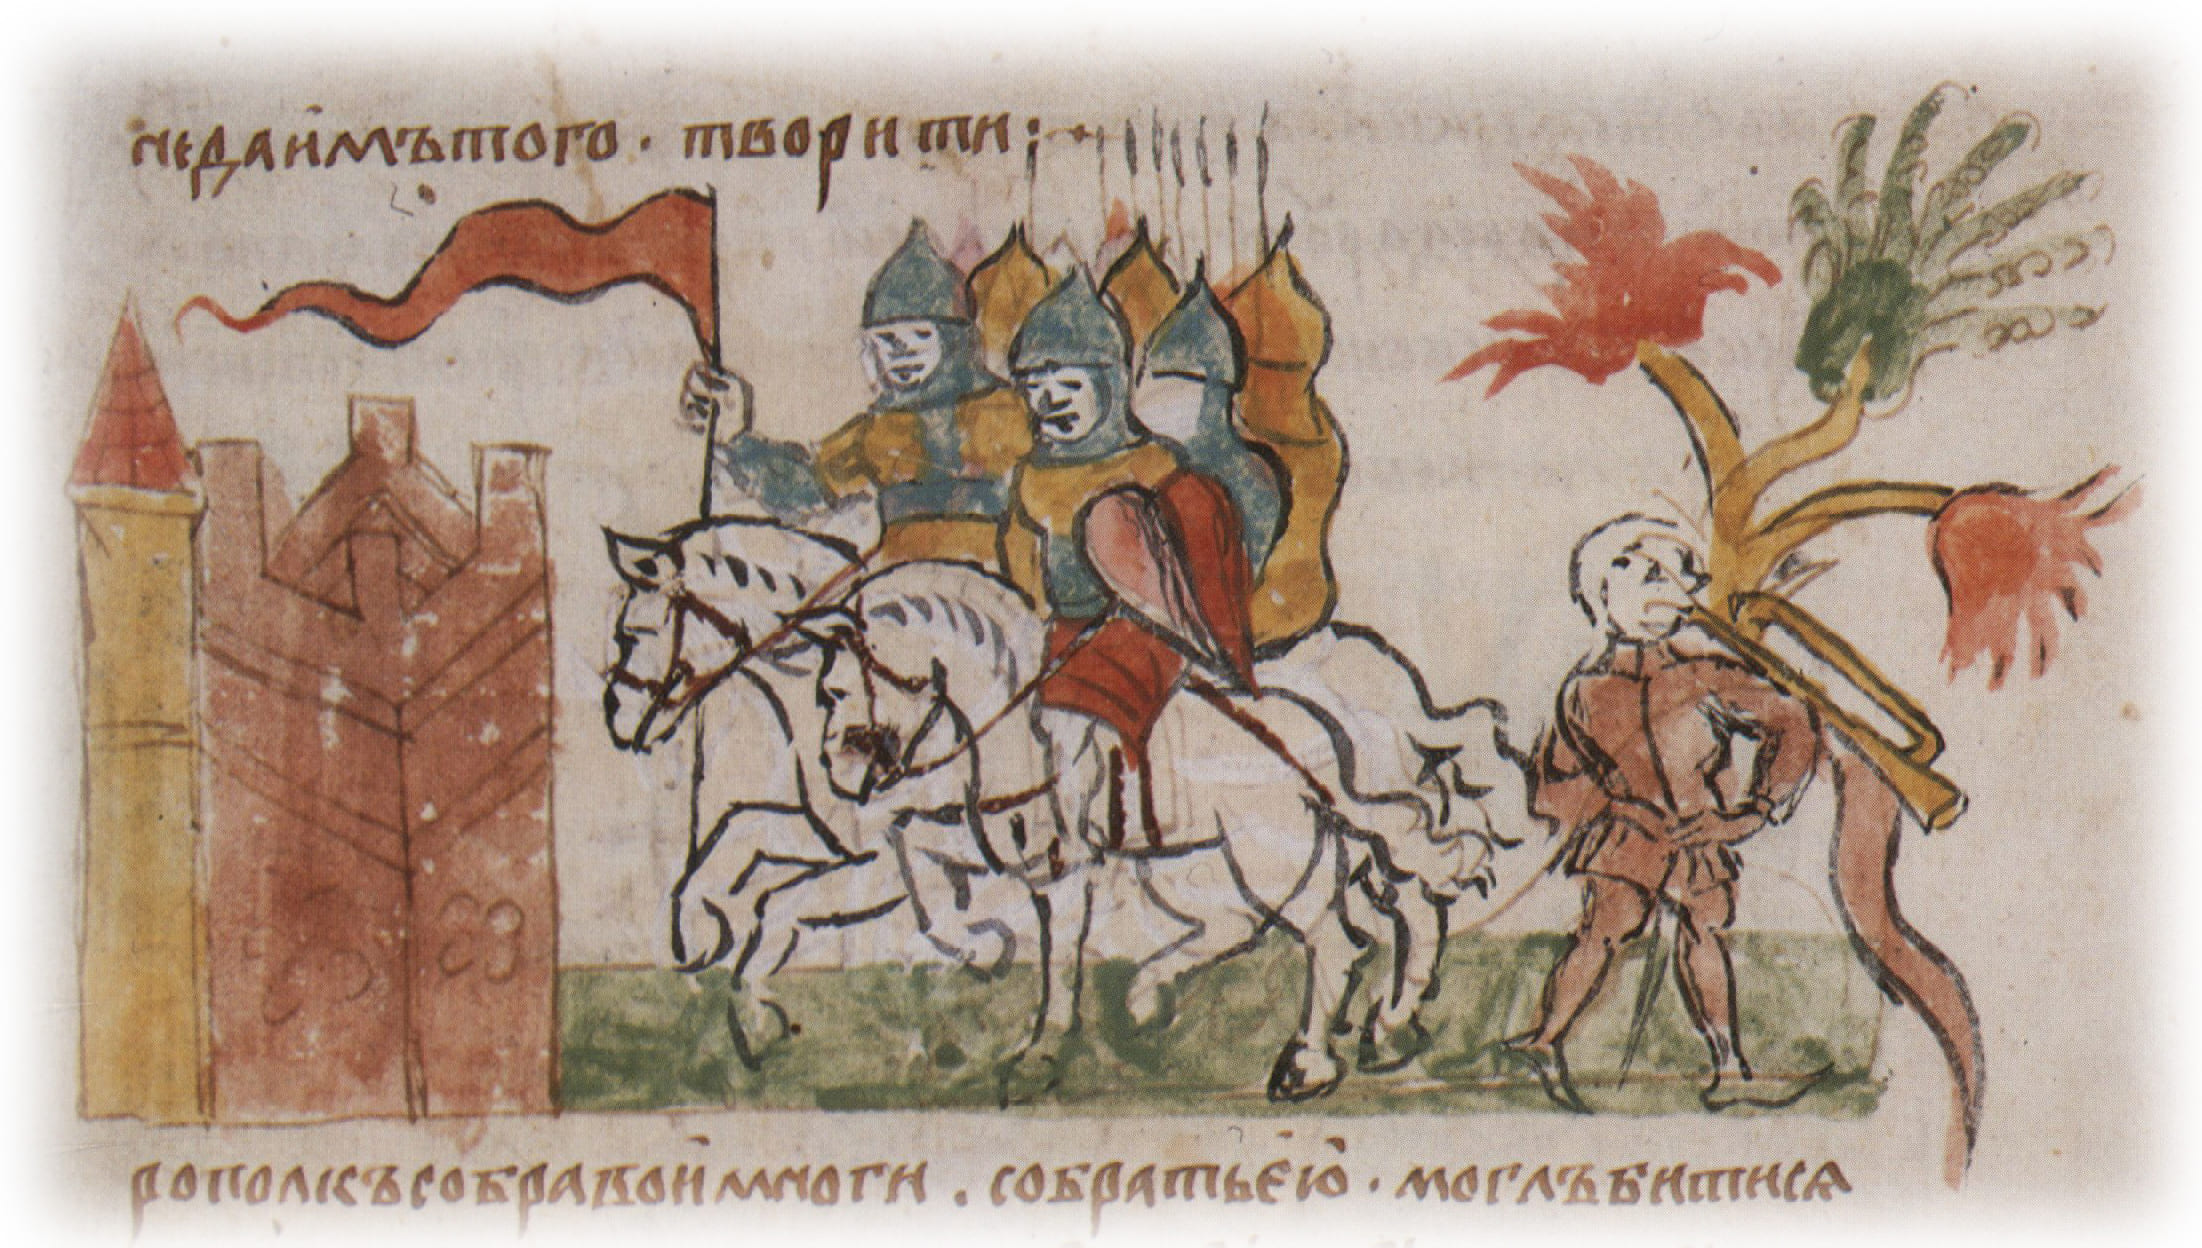 недаимътого · творити :·
рополкъсобравоимноги . собратьєю · моглъбитисѧ